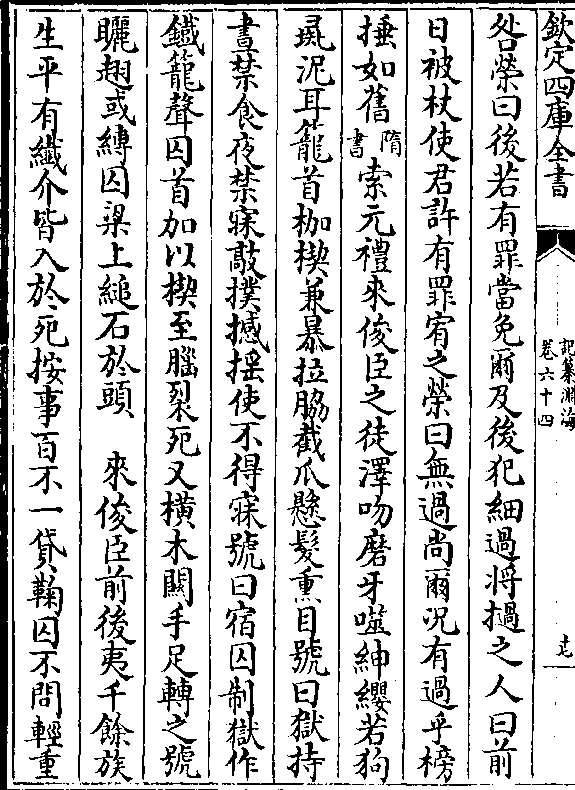 欽定四庫全書
記纂淵海
卷六十四
咎榮曰後若有罪當免爾及後犯細過將撾之人曰前
日被杖使君許有罪宥之榮曰無過尚爾况有過乎榜
捶如舊隋書索元禮來俊臣之徒澤吻磨牙噬紳纓若狗
彘泥耳籠首枷楔兼暴拉脇截爪懸髮熏目號曰獄持
晝禁食夜禁寐敲撲撼摇使不得寐號曰宿囚制獄作
鐵籠聲囚首加以楔至腦裂死又横木關手足轉之號
曬翅或縛囚梁上縋石於頭 來俊臣前後夷千餘族
生平有纎介皆入於死按事百不一貸鞠囚不問輕重